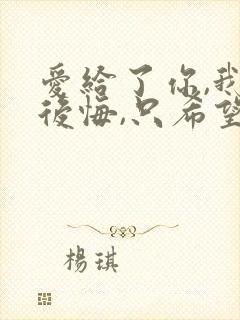 愛給了你,我
後悔,只希望
楊琪